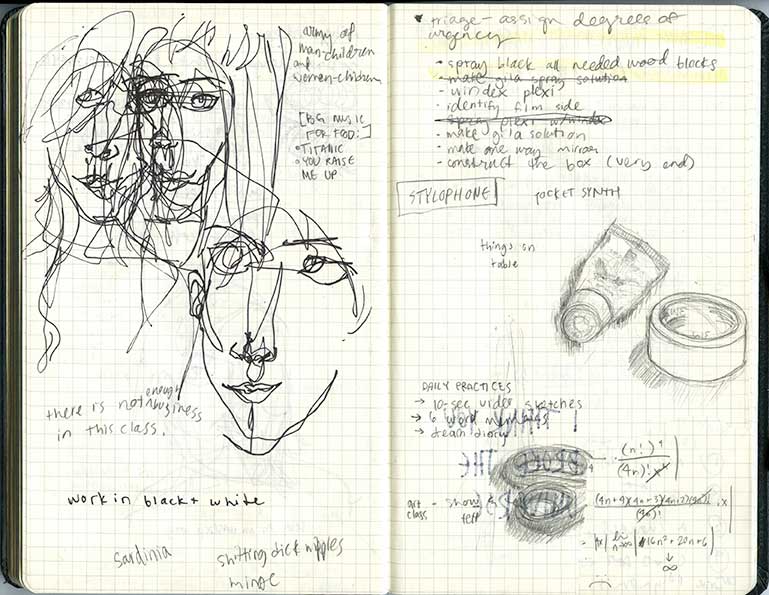 army of
man-children
and
women-children
[BG MUSIC
FOR FOOD:]
• TITANIC
• YOU RAISE
ME UP
there is not enough business
in this class.
work in black + white
sardinia
shitting dick nipples
triage - assign degrees of
urgency
• spray black all needed wood blocks
• make gila spray solution
- windex plexi
• identify film side
• spray plexi w/ windex
• make gila solution
• make one way mirror
• construct the box (very end)
STYLOPHONE
POCKET SYNTH
things on
table
DAILY PRACTICES
→ 10-sec video sketches
→ 6 word
→ dream diary
art
class
- show &
tell
(n!)⁴
(4n)! x⁴
(4n+4)(4n+3)(4n+2)
(4n)!
• x
lim
n→∞
16n² + 20n + 6
↓
∞